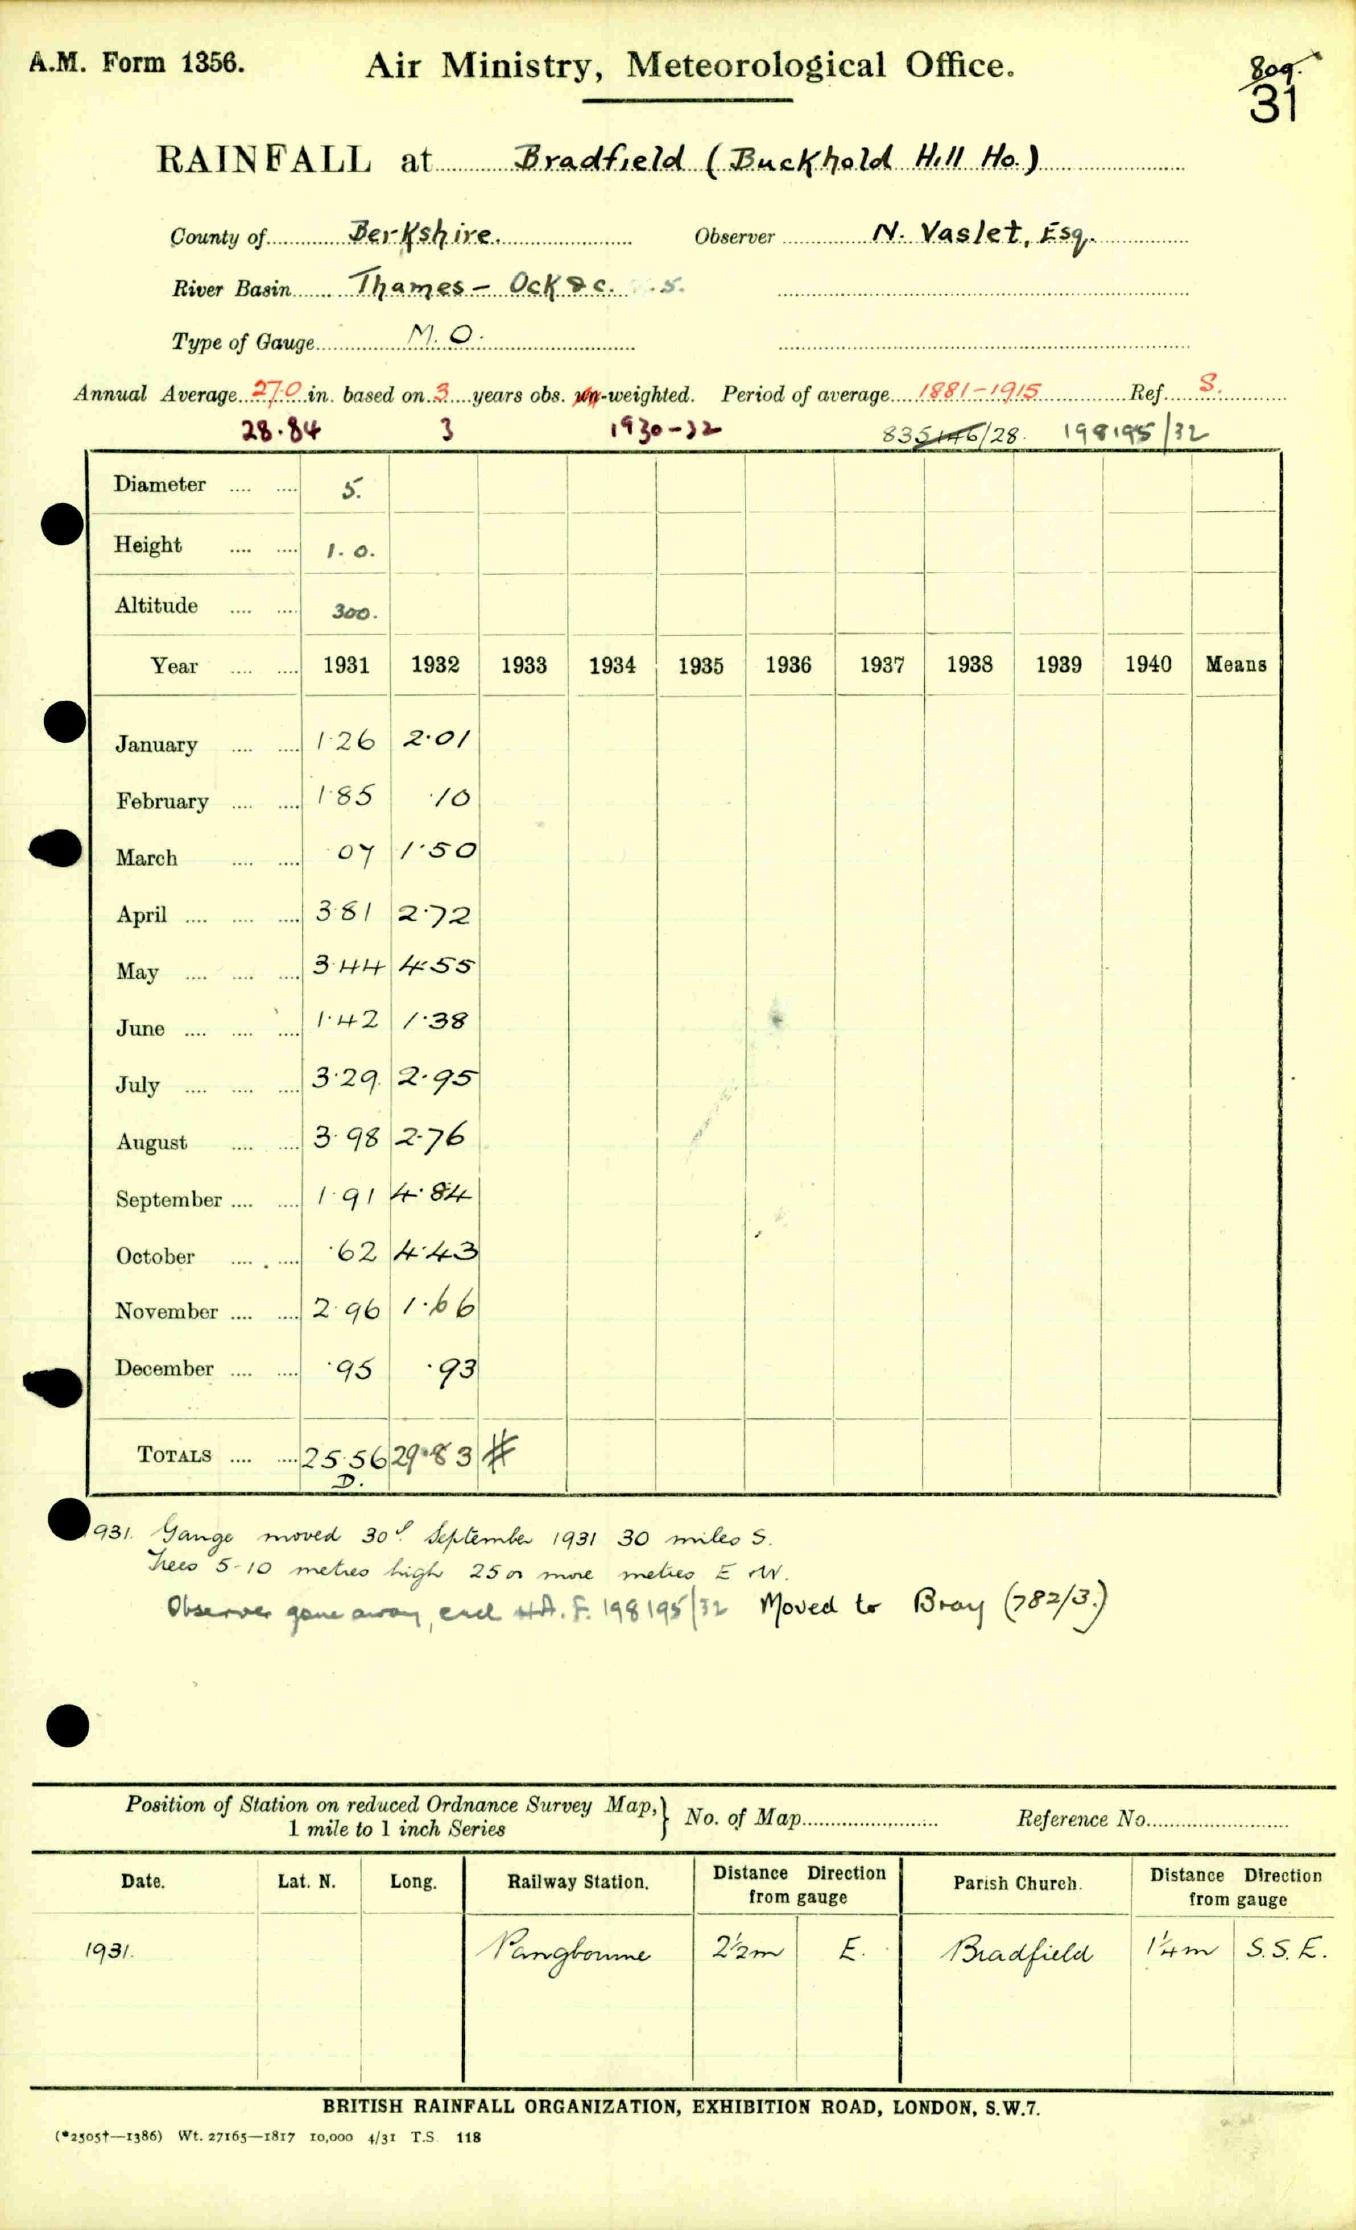 A.M. Form 1356. Air Ministry, Meteorological Office. 809.
31
RAINFALL at Bradfield (Buckhold Hill Ho.)
County of Berkshire. Observer N. Vaslet, Esq.
River Basin Thames – Ock &c.
Type of Gauge M.O.
Annual Average 27.0 in. based on 3 years obs. un-weighted. Period of average 1881–1915 Ref. S.
28.84 3 1930–32 835146/28. 198195/32
Diameter .... .... 5.
Height .... .... 1.0.
Altitude .... .... 300.
Year .... .... 1931 1932 1933 1934 1935 1936 1937 1938 1939 1940 Means
January .... .... 1.26 2.01
February .... .... 1.85 .10
March .... .... 07 1.50
April .... .... .... 3.81 2.72
May .... .... .... 3.44 4.55
June .... .... .... 1.42 1.38
July .... .... .... 3.29 2.95
August .... .... 3.98 2.76
September .... .... 1.91 4.84
October .... .... .62 4.43
November .... .... 2.96 1.66
December .... .... .95 .93
TOTALS .... .... 25.56 29.83 #
D.
1931. Gauge moved 30th September 1931 30 miles S.
Trees 5-10 metres high 25 or more metres E & W.
Observer gone away, 198195/32 Moved to Bray (782/3.)
Position of Station on reduced Ordnance Survey Map, } No. of Map Reference No.
1 mile to 1 inch Series
Date. Lat. N. Long. Railway Station. Distance Direction from gauge Parish Church. Distance Direction from gauge
1931. Pangbourne 2½m E. Bradfield 1¼m S.S.E.
BRITISH RAINFALL ORGANIZATION, EXHIBITION ROAD, LONDON, S.W.7.
(*2505†—1386) Wt. 27165—1817 10,000 4/31 T.S. 118